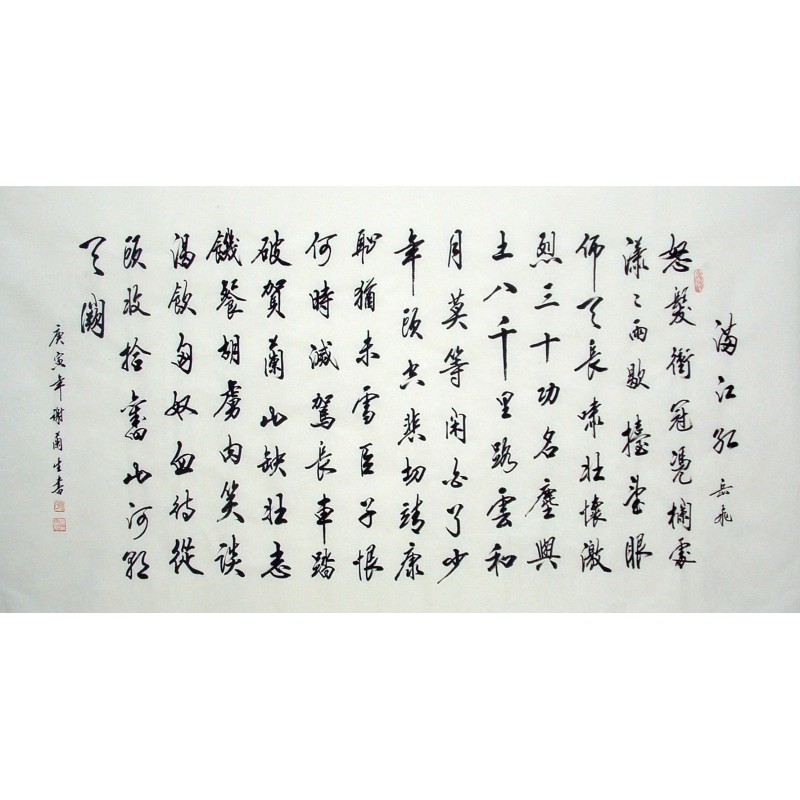 满江红 岳飛
怒髮衝冠憑欄處
潇〻雨歇擡望眼
仰天長嘯壯懷激
烈三十功名塵與
土八千里路雲和
月莫等闲白了少
年頭空悲切靖康
恥猶未雪臣子恨
何時滅駕長車踏
破賀蘭山缺壯志
饑餐胡虜肉笑談
渴飲匈奴血待從
頭收拾舊山河朝
天闕
庚寅年謝蘭生書